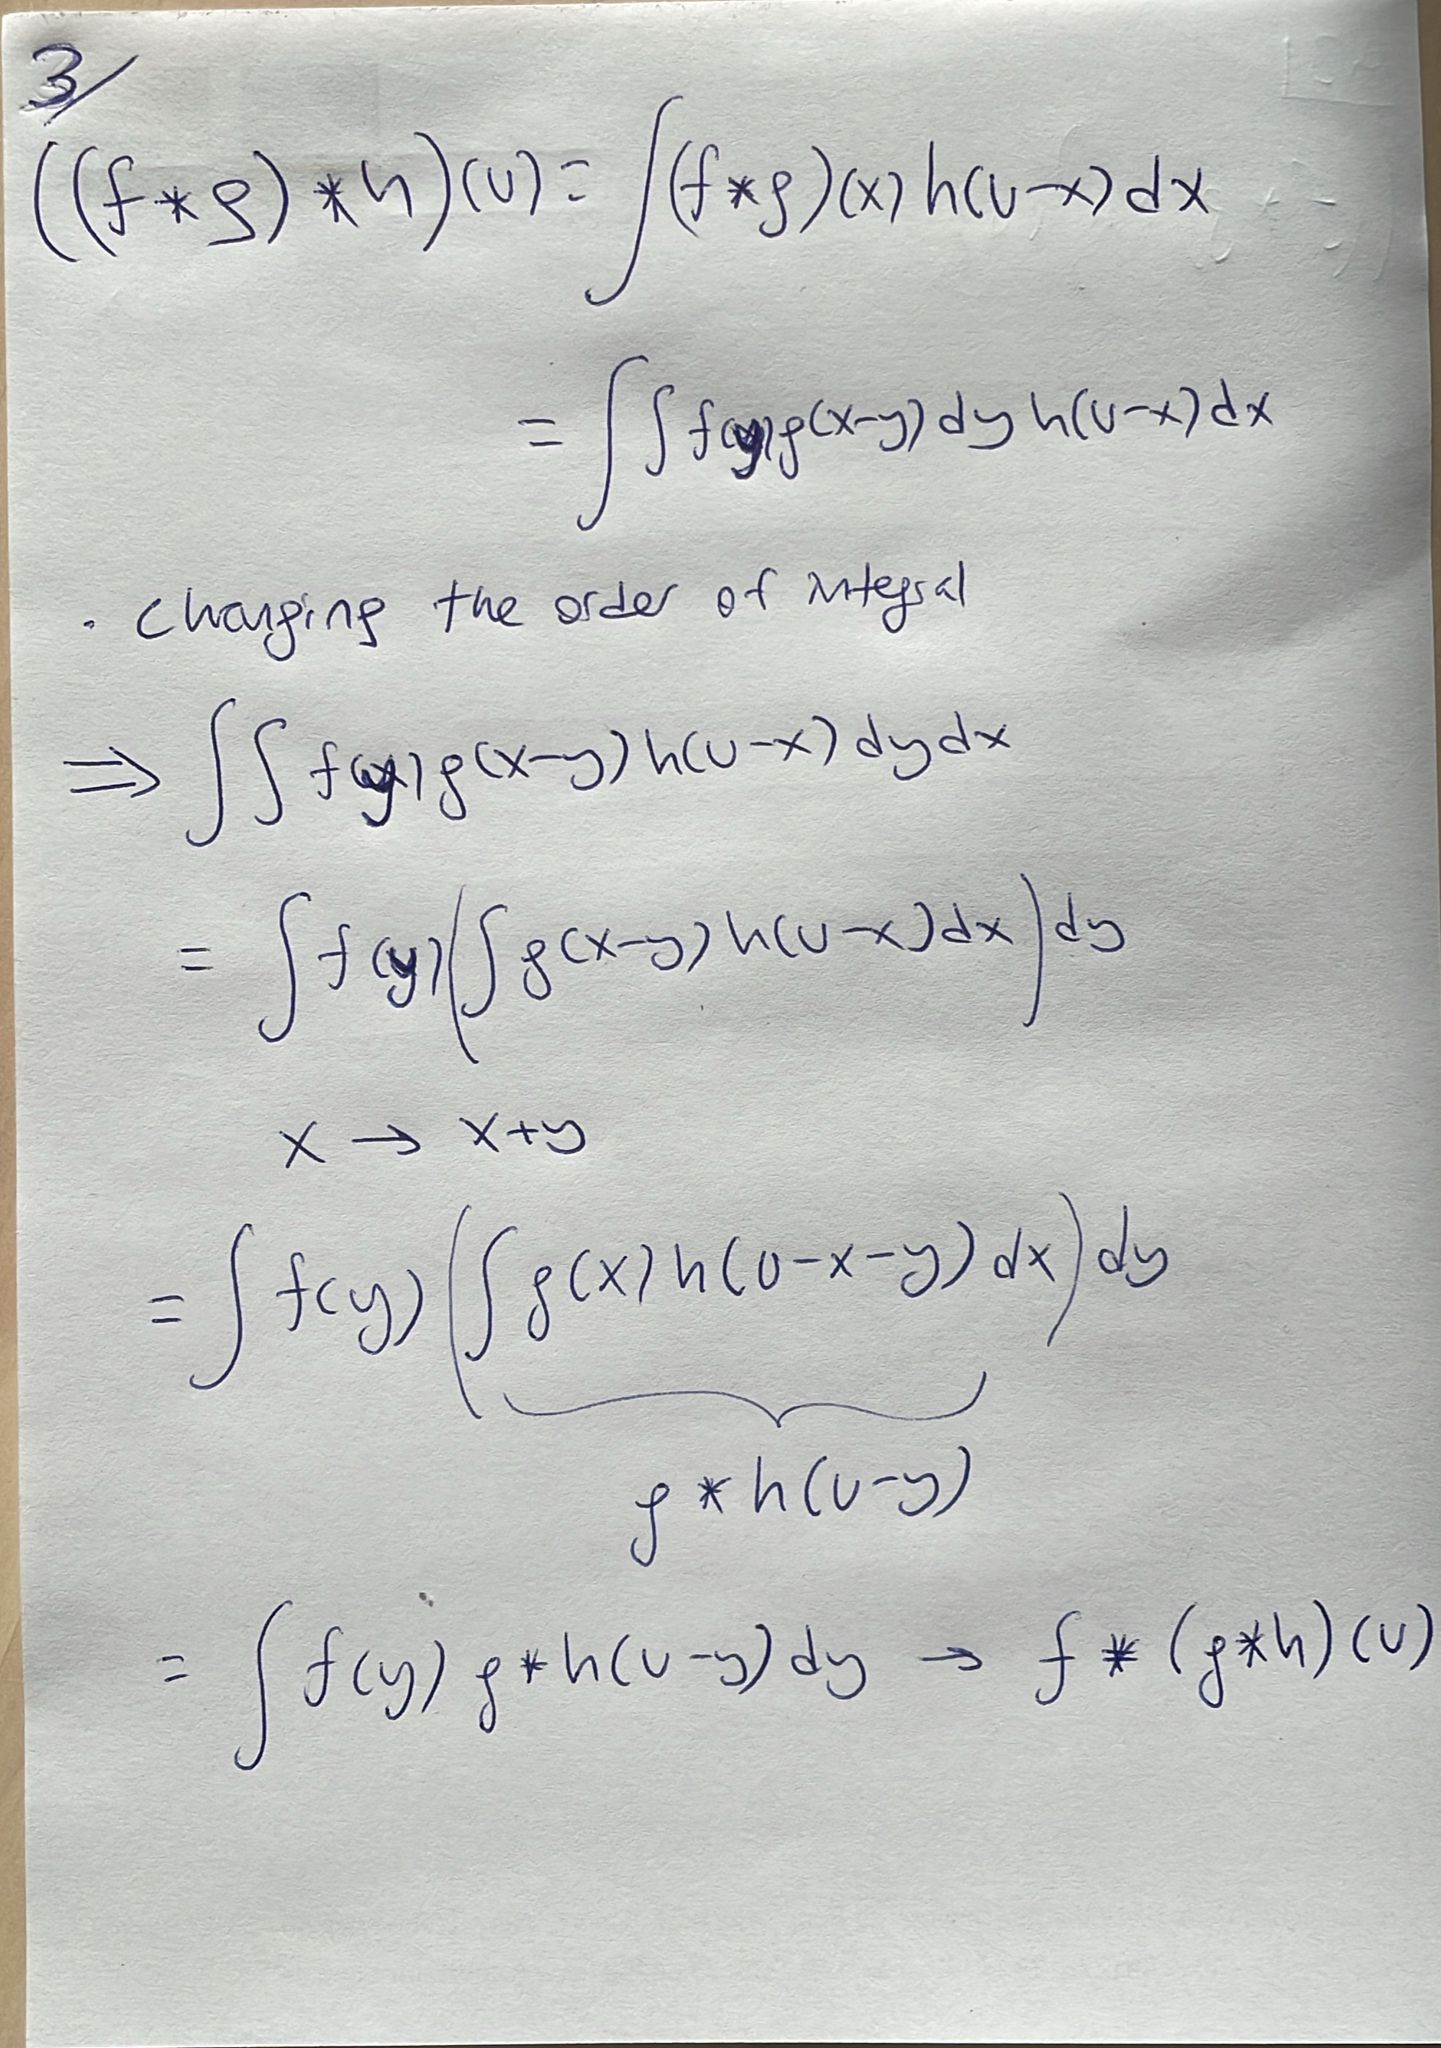 3/
((f*g)*h)(u) = ∫(f*g)(x) h(u-x) dx
= ∫∫ f(y) g(x-y) dy h(u-x) dx
· changing the order of integral
⇒ ∫∫ f(y) g(x-y) h(u-x) dy dx
= ∫ f(y) (∫ g(x-y) h(u-x) dx) dy
x → x+y
= ∫ f(y) (∫ g(x) h(u-x-y) dx) dy
g*h(u-y)
= ∫ f(y) g*h(u-y) dy → f*(g*h)(u)